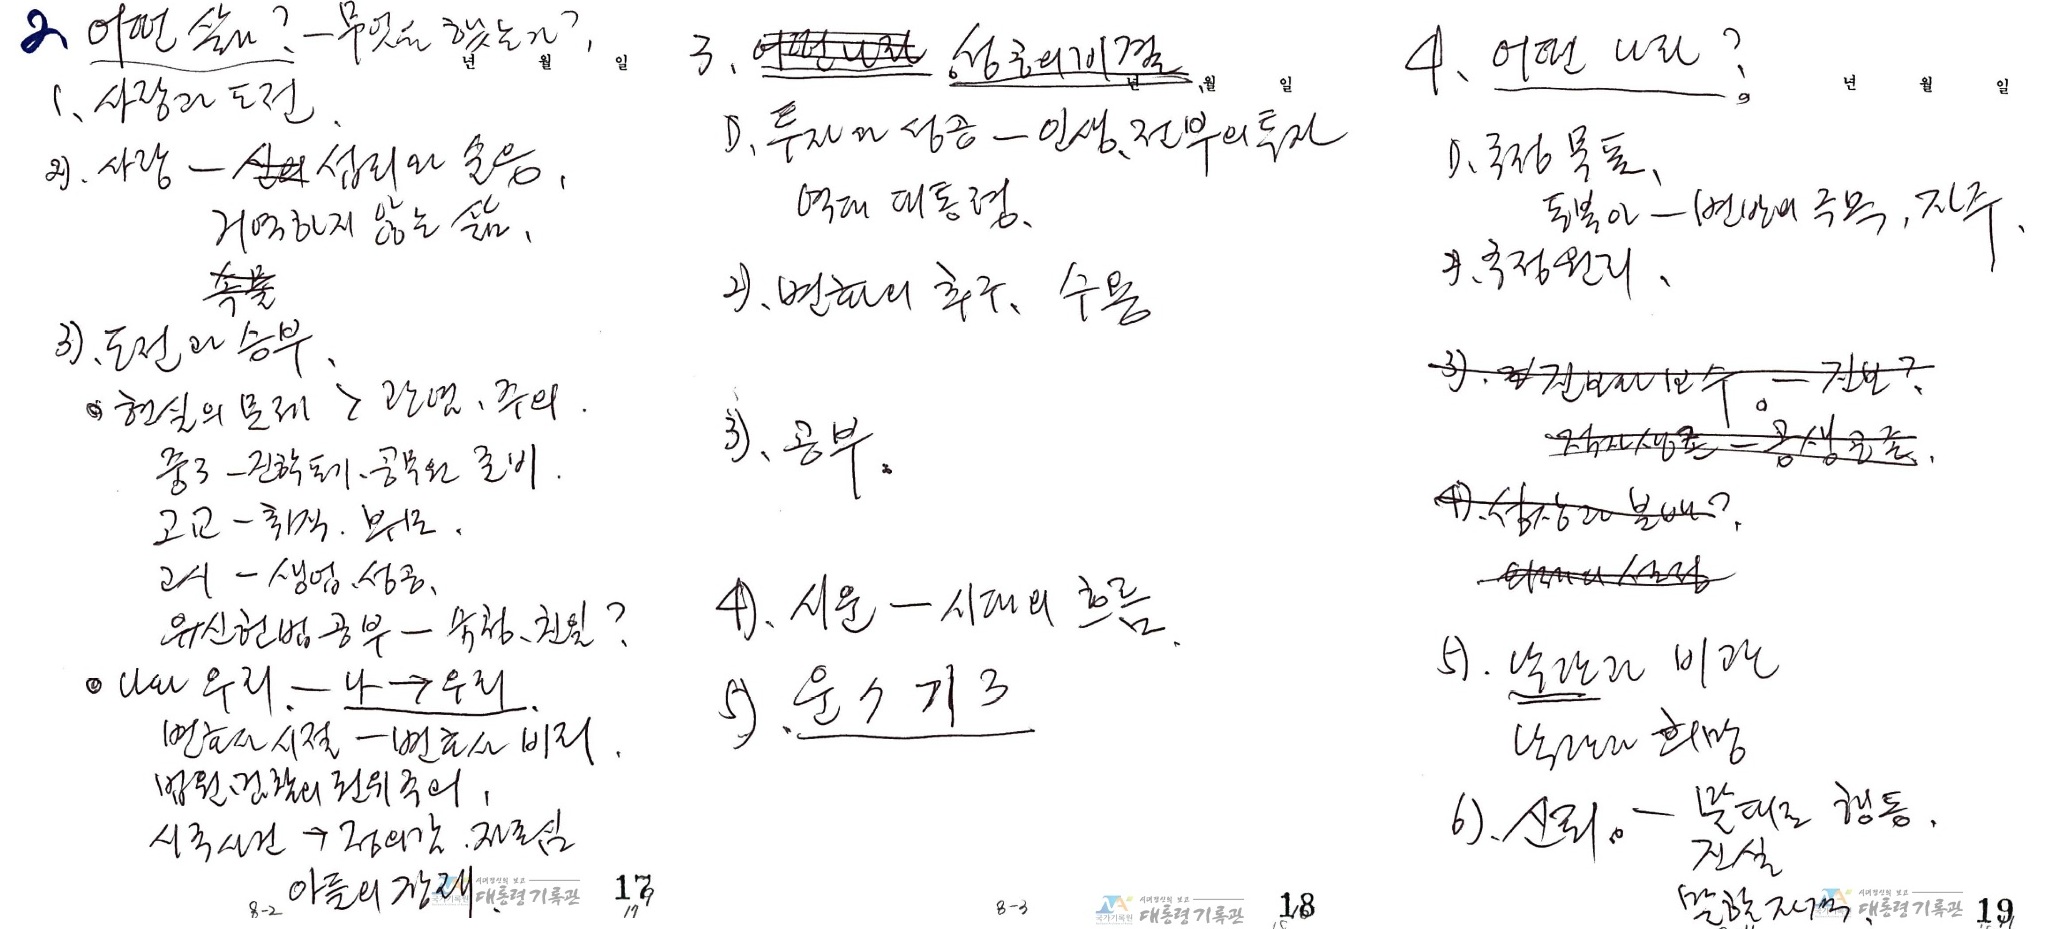 2. 어떤 삶? - 무엇을 했는가?
년 월 일
1. 사랑과 도전.
2). 사랑 - 섭리와 순응,
거역하지 않는 삶.
속물
3). 도전과 승부.
현실의 문제 > 관념. 주의.
중3 - 진학포기. 공무원 준비.
고교 - 취직. 부모.
고시 - 생업. 성공.
유신헌법 공부 - 숙청. 친일?
나와 우리. - 나 → 우리.
변호사 시절 - 변호사 비리.
법원. 검찰의 권위주의,
시국사건 → 정의감. 자존심
아들의 장래.
8-2
대통령기록관
17
3. 어떤 나라 성공의 비결
년 월 일
1). 투자와 성공 - 인생. 전부의 투자
역대 대통령.
2). 변화의 추구. 수용
3). 공부.
4). 시운 - 시대의 흐름.
5). 운 7 기 3
8-3
국가기록원 대통령기록관
18
4. 어떤 나라?
년 월 일
1). 국정 목표.
동북아 - 변방의 극복, 자주.
2). 국정원리.
3). 진보와 보수. - 진보?
적자생존 - 공생공존.
4). 성장과 분배?
5). 낙관과 비관
낙관과 희망
6). 신뢰. - 말대로 행동.
진실
대통령기록관
19